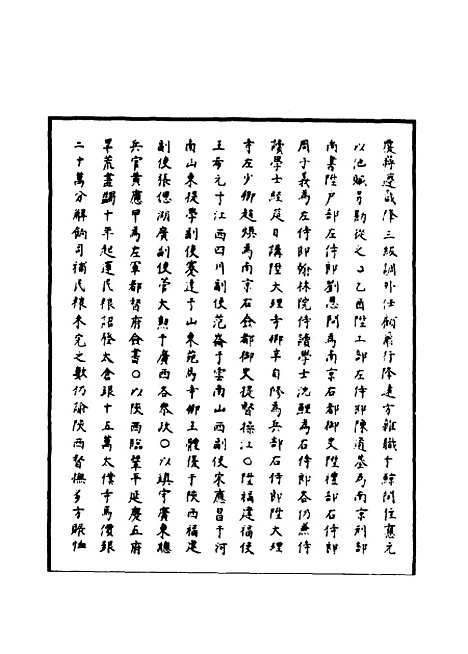 度稱遵歲降三級調外任飢飛行降遠方雜職于鯨閒住應元
以他贓另勘從之〇乙酉陞工部左侍郎陳道基為南京刑部
尚書陞戶部左侍郎劉思問為南京右都御史陞禮部右侍郎
周子義為左侍郎翰林院侍讀學士沈鯉為右侍郎各仍兼侍
讀學士經筵日講陞大理寺卿辛自修為兵部右侍郎陞大理
寺左少卿趙煥為南京右僉都御史提督操江〇陞福建福使
王希元于江西四川副使范崙于雲南山西副使宋應昌于河
南山東提學副使蹇達于山東苑馬寺卿王體復于陝西福建
副使張偲湖廣副使管大勲于廣西各參政〇以鎮守廣東總
兵官黃應甲為左軍都督府僉書〇以陝西臨鞏平延慶五府
旱荒蓋蠲十年起運民糧詔發太倉銀十五萬太僕寺馬價銀
二十萬分解餉司補民糧未完之數仍諭陝西督撫多方賑恤